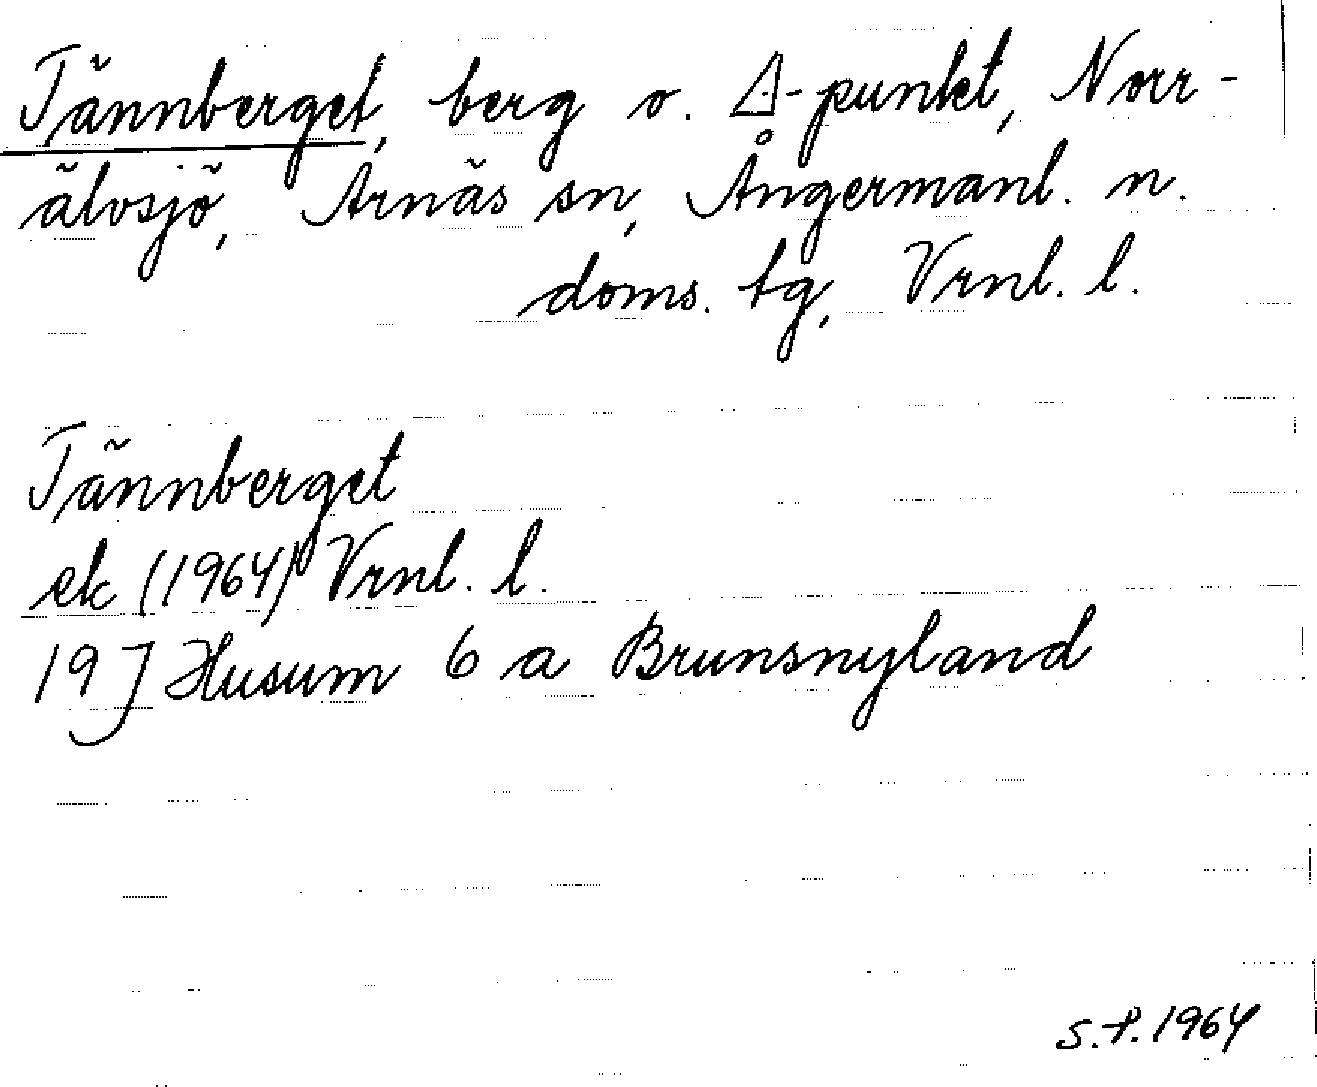 Tännberget, berg o. △-punkt, Norr-
älvsjö, Arnäs sn, Ångermanl. n.
doms. tg, Vrnl. l.
Tännberget
ek (1964) Vrnl. l.
19J Husum 6 a Brunsnyland
S.P. 1964